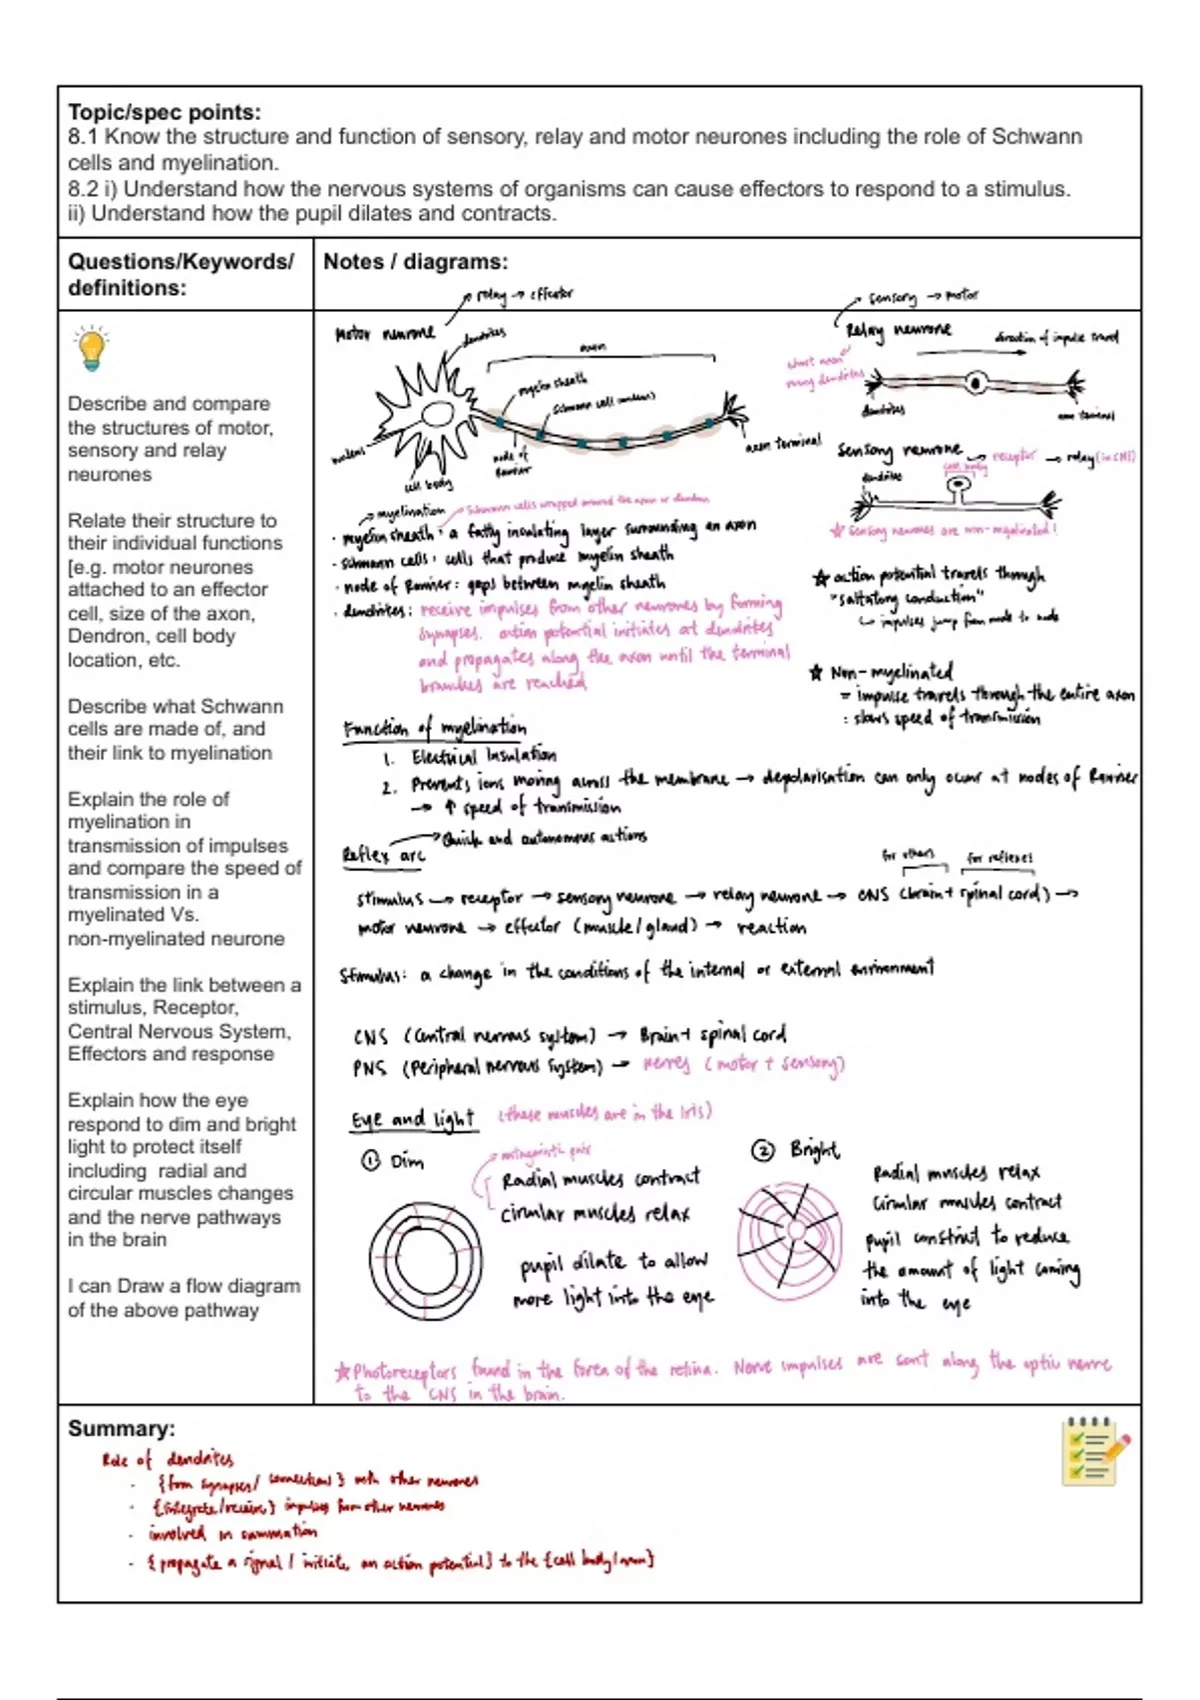 Topic/spec points:
8.1 Know the structure and function of sensory, relay and motor neurones including the role of Schwann
cells and myelination.
8.2 i) Understand how the nervous systems of organisms can cause effectors to respond to a stimulus.
ii) Understand how the pupil dilates and contracts.
Questions/Keywords/
definitions:
Notes / diagrams:
Describe and compare
the structures of motor,
sensory and relay
neurones
Relate their structure to
their individual functions
[e.g. motor neurones
attached to an effector
cell, size of the axon,
Dendron, cell body
location, etc.
Describe what Schwann
cells are made of, and
their link to myelination
Explain the role of
myelination in
transmission of impulses
and compare the speed of
transmission in a
myelinated Vs.
non-myelinated neurone
Explain the link between a
stimulus, Receptor,
Central Nervous System,
Effectors and response
Explain how the eye
respond to dim and bright
light to protect itself
including radial and
circular muscles changes
and the nerve pathways
in the brain
I can Draw a flow diagram
of the above pathway
relay → effector
Motor neurone
dendrites
axon
myelin sheath
Schwann cell nucleus
nucleus
cell body
node of
Ranvier
axon terminal
sensory → motor
Relay neurone
direction of impulse travel
short axon
many dendrites
dendrites
axon terminal
Sensory neurone → receptor → relay (in CNS)
cell body
dendrites
☆ Sensory neurones are non-myelinated!
→ myelination → Schwann cells wrapped around the axon or dendron
· myelin sheath : a fatty insulating layer surrounding an axon
· Schwann cells : cells that produce myelin sheath
· node of Ranvier : gaps between myelin sheath
· dendrites : receive impulses from other neurones by forming
synapses. action potential initiates at dendrites
and propagates along the axon until the terminal
branches are reached
☆ action potential travels through
"saltatory conduction"
↳ impulses jump from node to node
☆ Non-myelinated
= impulse travels through the entire axon
: slows speed of transmission
Function of myelination
1. Electrical Insulation
2. Prevents ions moving across the membrane → depolarisation can only occur at nodes of Ranvier
→ ↑ speed of transmission
Reflex arc → Quick and autonomous actions
for others
for reflexes
stimulus → receptor → sensory neurone → relay neurone → CNS (brain + spinal cord) →
motor neurone → effector (muscle/gland) → reaction
Stimulus : a change in the conditions of the internal or external environment
CNS (Central nervous system) → Brain + spinal cord
PNS (Peripheral nervous system) → nerves (motor + sensory)
Eye and light (these muscles are in the Iris)
① Dim
antagonistic pair
Radial muscles contract
circular muscles relax
pupil dilate to allow
more light into the eye
② Bright
Radial muscles relax
Circular muscles contract
pupil constrict to reduce
the amount of light coming
into the eye
☆ Photoreceptors found in the fovea of the retina. Nerve impulses are sent along the optic nerve
to the CNS in the brain.
Summary:
Role of dendrites
- {form synapses/ connections} with other neurones
- {integrate/receive} impulses from other neurones
- involved in summation
- {propagate a signal / initiate an action potential} to the {cell body/axon}